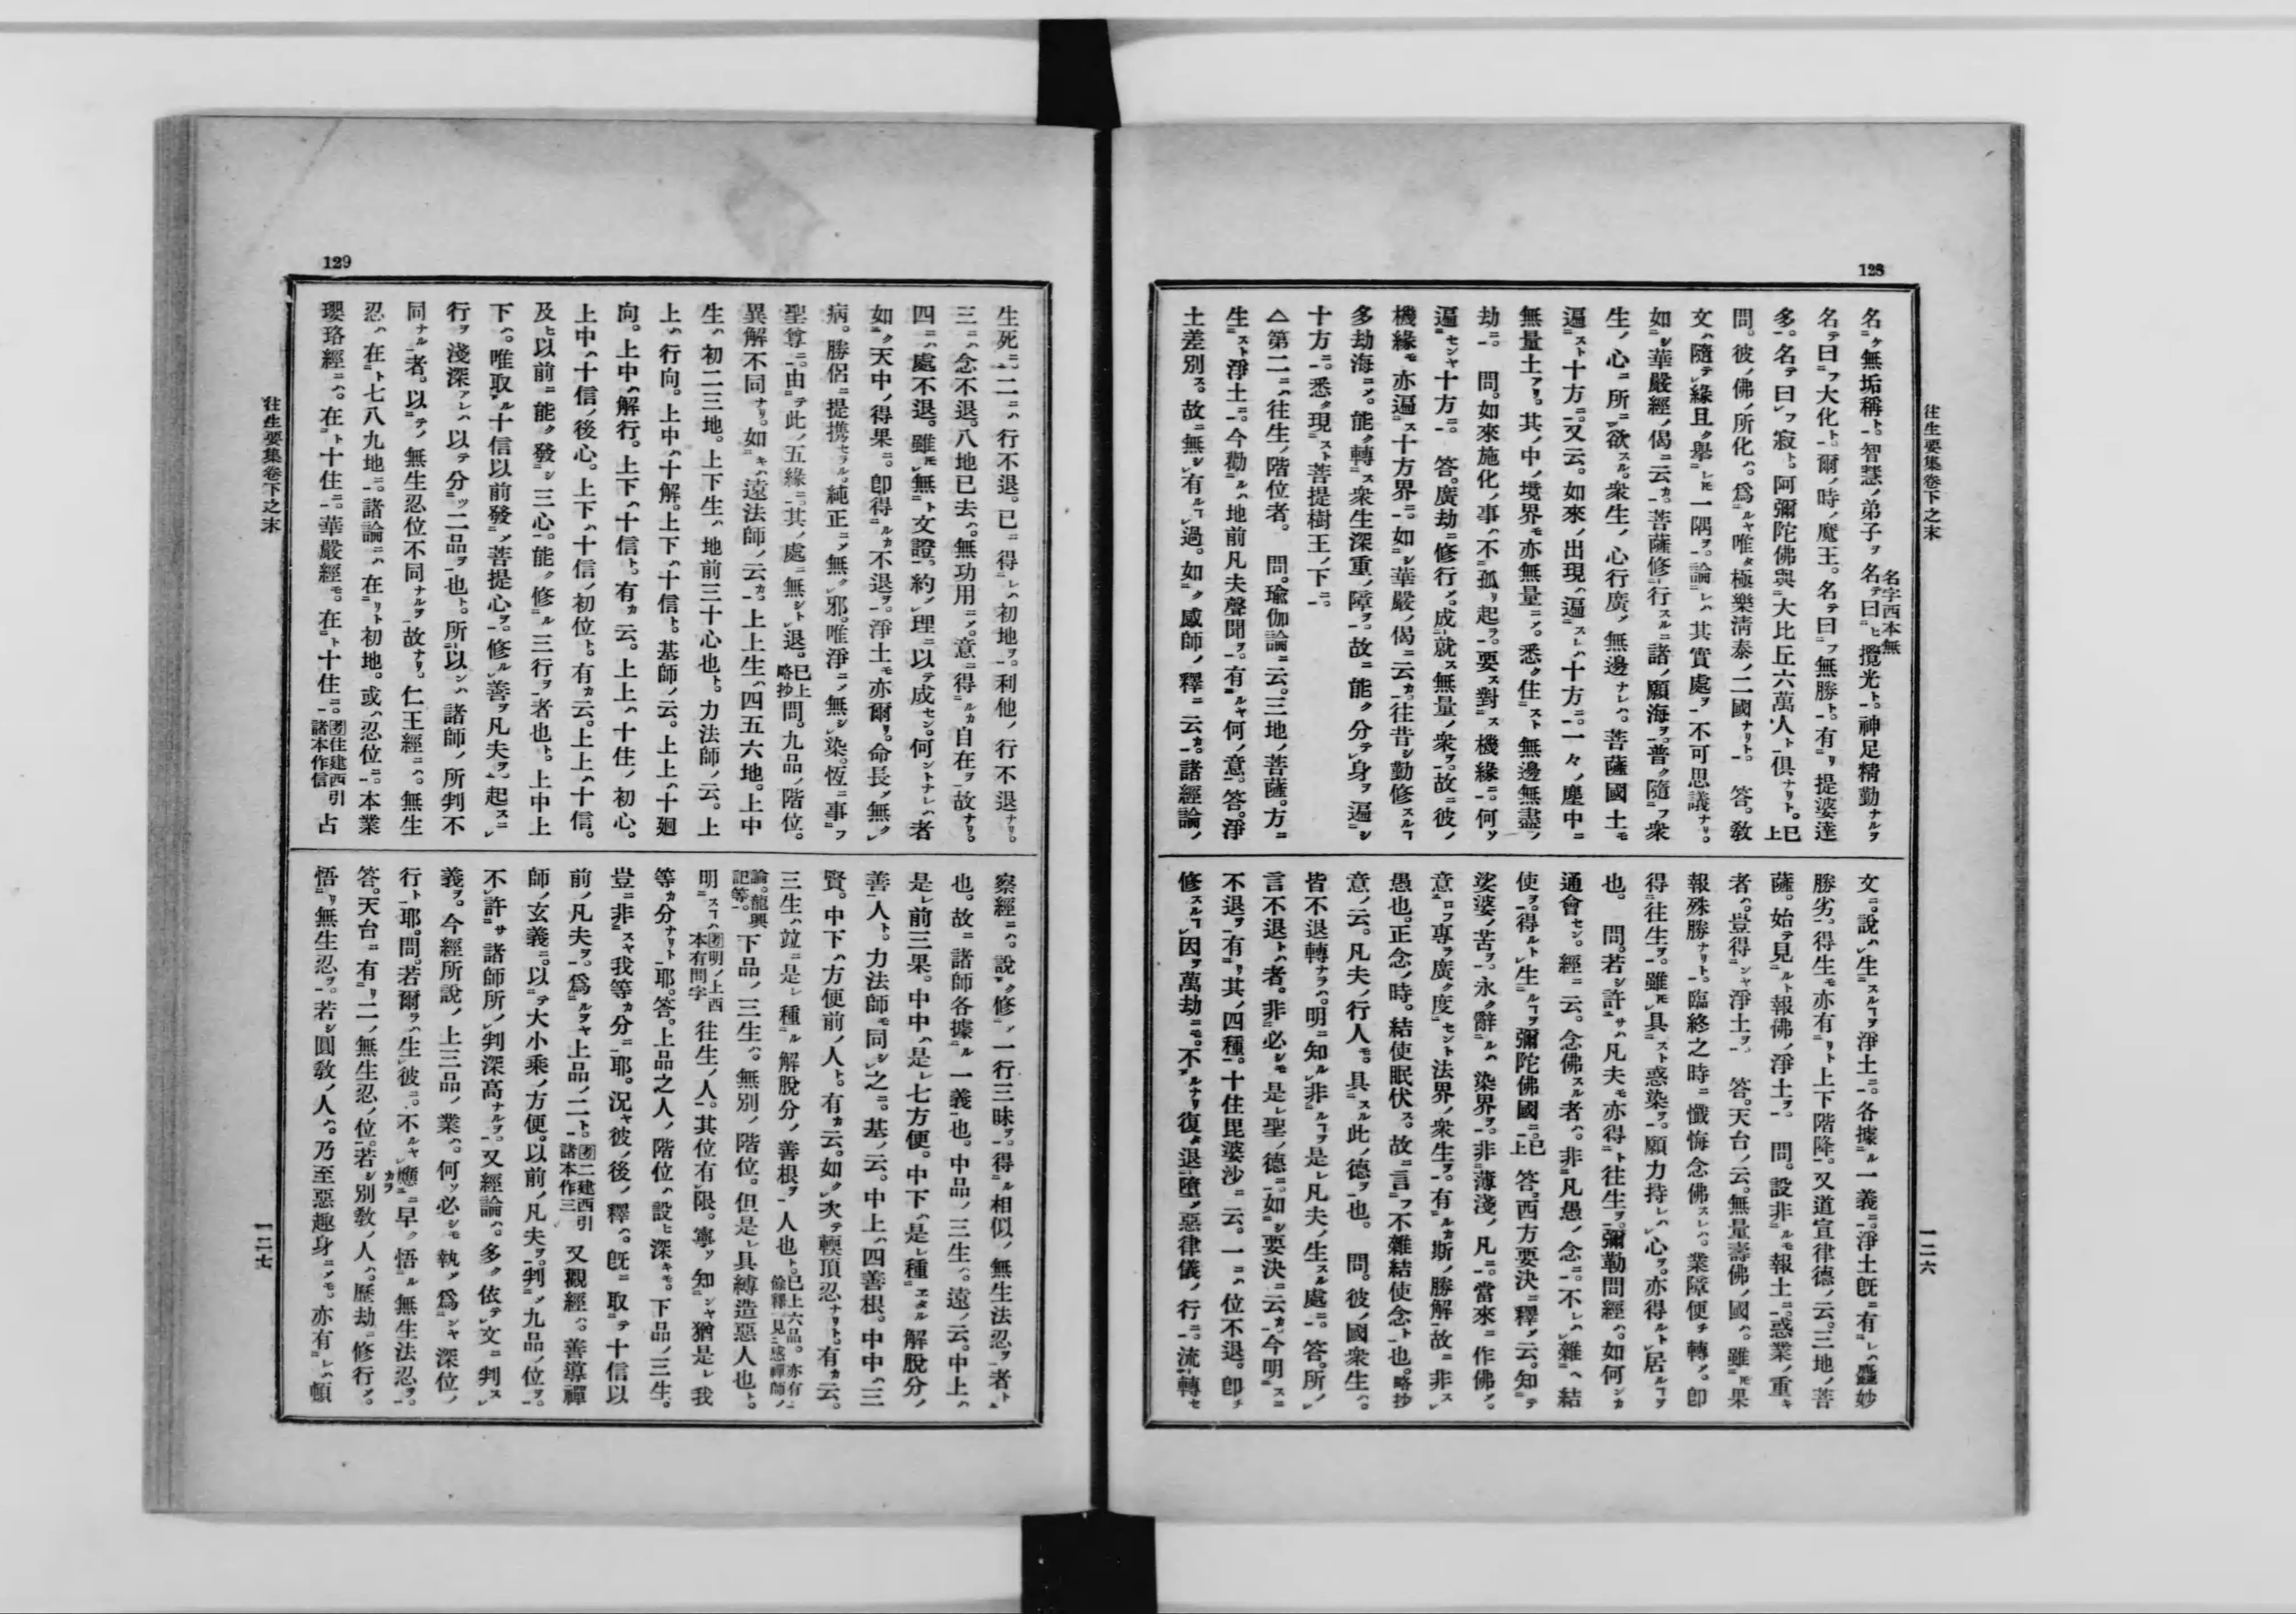 往生要集卷下之末
一二六
128
名ケ無垢稱ト。智慧ノ弟子ヲ名テ曰ヒ攬光ト。神足精勤ナルヲ
名字西本無
名テ曰フ大化ト。爾ノ時ノ魔王。名テ曰フ無勝ト。有リ提婆達
多。名テ曰フ寂ト。阿彌陀佛與大比丘六萬人ト俱ナリト。已上
問。彼ノ佛ノ所化ハ。爲ルヤ唯タ極樂淸泰ノ二國ナリト。 答。敎
文ハ隨テ緣且ク擧レモ一隅ヲ。論レハ其實處ヲ不可思議ナリ。
如シ華嚴經ノ偈ニ云カ。菩薩修行スルニ諸ノ願海ヲ。普ク隨フ衆
生ノ心ニ所ニ欲スル。衆生ノ心行廣ノ無邊ナレハ。菩薩國土モ
遍スト十方ニ。又云。如來ノ出現ハ遍スレハ十方ニ。一々ノ塵中ニ
無量土アリ。其ノ中ノ境界モ亦無量ニノ。悉ク住スト無邊無盡ノ
劫ニ。 問。如來施化ノ事ハ不孤リ起ラ。要ス對ス機緣ニ。何ソ
遍センヤ十方ニ。 答。廣劫ニ修行ノ。成就ス無量ノ衆ヲ。故ニ彼ノ
機緣モ亦遍ス十方界ニ。如シ華嚴ノ偈ニ云カ。往昔シ勤修スルヿ
多劫海ニノ。能ク轉ス衆生深重ノ障ヲ。故ニ能ク分テ身ヲ遍シ
十方ニ。悉ク現スト菩提樹王ノ下ニ。
△第二ニハ往生ノ階位者。 問。瑜伽論ニ云。三地ノ菩薩。方ニ
生スト淨土ニ。今勸ルハ地前凡夫聲聞ヲ。有ルヤ何ノ意。答。淨
土差別ス。故ニ無シ有ルヿ過。如ク感師ノ釋ニ云カ。諸經論ノ
文ニ。說ハ生スルヿヲ淨土ニ。各據ル一義ニ。淨土旣ニ有レハ麤妙
勝劣。得生モ亦有リト上下階降。又道宣律德ノ云。三地ノ菩
薩。始テ見ルト報佛ノ淨土ヲ。 問。設非ルモ報土ニ。惑業ノ重キ
者ハ。豈得ンヤ淨土ヲ。 答。天台ノ云。無量壽佛ノ國ハ。雖モ果
報殊勝ナリト。臨終之時ニ懺悔念佛スレハ。業障便チ轉ノ。卽
得往生ヲ。雖モ具スト惑染ヲ。願力持レハ心ヲ。亦得ルト居ルヿヲ
也。 問。若シ許サハ凡夫モ亦得ト往生ヲ。彌勒問經ハ。如何ンカ
通會セン。經ニ云。念佛スル者ハ。非凡愚ノ念ニ。不レハ雜ヘ結
使ヲ。得ルト生ルヿヲ彌陀佛國ニ。已上 答。西方要決ニ釋ノ云。知テ
娑婆ノ苦ヲ。永ク辭ルハ染界ヲ。非薄淺ノ凡ニ。當來ニ作佛ノ。
意ロフ專ラ廣ク度セント法界ノ衆生ヲ。有ルカ斯ノ勝解故ニ非ス
愚也。正念ノ時。結使眠伏ス。故ニ言フ不雜結使念ト也。略抄
意ノ云。凡夫ノ行人モ。具スル此ノ德ヲ也。 問。彼ノ國衆生ハ。
皆不退轉ナラハ。明ニ知ル非ルヿヲ是レ凡夫ノ生スル處ニ。答。所ノ
言不退トハ者。非必シモ是レ聖ノ德ニ。如シ要決ニ云カ。今明スニ
不退ヲ有リ其ノ四種。十住毘婆沙ニ云。一ニハ位不退。卽チ
修スルヿ因ヲ萬劫ニモ。不ルナリ復タ退墮ノ惡律儀ノ行ニ。流轉セ
129
往生要集卷下之末
一二七
生死ニ。二ニハ行不退。已ニ得レハ初地ヲ。利他ノ行不退ナリ。
三ニハ念不退。八地已去ハ。無功用ニノ。意ニ得ルカ自在ヲ故ナリ。
四ニハ處不退。雖モ無ト文證。約ノ理ニ以テ成セン。何ントナレハ者
如ク天中ノ得果ニ。卽得ルカ不退ヲ。淨土モ亦爾リ。命長ノ無ク
病。勝侶ニ提携セラル。純正ニノ無ク邪。唯淨ニノ無シ染。恆ニ事フ
聖尊ニ。由テ此ノ五緣ニ。其ノ處ニ無シト退。已上略抄 問。九品ノ階位。
異解不同ナリ。如キハ遠法師ノ云カ。上上生ハ四五六地。上中
生ハ初二三地。上下生ハ地前三十心也ト。力法師ノ云。上
上ハ行向。上中ハ十解。上下ハ十信ト。基師ノ云。上上ハ十廻
向。上中ハ解行。上下ハ十信ト。有カ云。上上ハ十住ノ初心。
上中ハ十信ノ後心。上下ハ十信ノ初位ト。有カ云。上上ハ十信。
及ヒ以前ニ能ク發シ三心。能ク修ル三行ヲ者也ト。上中上
下ハ。唯取ル十信以前發ノ菩提心ヲ。修ル善ヲ凡夫ヲ。起スニ
行ヲ淺深アレハ以テ分ツ二品ヲ也ト。所以ンハ諸師ノ所判不
同ナル者。以テノ無生忍位不同ナルヲ故ナリ。仁王經ニハ。無生
忍ハ在ト七八九地ニ。諸論ニハ在リト初地。或ハ忍位ニ。本業
瓔珞經ニハ。在ト十住ニ。華嚴經モ。在ト十住ニ。住建西引諸本作信 占
察經ニハ。說ク修ノ一行三昧ヲ。得ル相似ノ無生法忍ヲ者ト
也。故ニ諸師各據ル一義也。中品ノ三生ハ。遠ノ云。中上ハ
是レ前三果。中中ハ是レ七方便。中下ハ是レ種エタル解脫分ノ
善人ト。力法師モ同シ之ニ。基ノ云。中上ハ四善根。中中ハ三
賢。中下ハ方便前ノ人ト。有カ云。如ク次テ輭頂忍ナリト。有カ云。
三生ハ竝ニ是レ種ル解脫分ノ善根ヲ人也ト。已上六品。亦有餘釋見感禪師ノ
論。龍興記等。 下品ノ三生ハ。無別ノ階位。但是レ具縛造惡人也ト。
明スヿハ 明ノ上西本有問字 往生ノ人。其位有限。寧ソ知シヤ猶是レ我
等カ分ナリト耶。答。上品之人ノ階位ハ設ヒ深キモ。下品ノ三生。
豈ニ非スヤ我等カ分ニ耶。況ヤ彼ノ後ノ釋ハ。旣ニ取テ十信以
前ノ凡夫ヲ。爲ルヲヤ上品ノ二ト。二建西引諸本作三 又觀經ハ。善導禪
師ノ玄義ニ。以テ大小乘ノ方便。以前ノ凡夫ヲ。判ノ九品ノ位ヲ。
不許サ諸師所ノ判深高ナルヲ。又經論ハ。多ク依テ文ニ判ス
義ヲ。今經所說ノ上三品ノ業ハ。何ソ必シモ執ノ爲シヤ深位ノ
行ト耶。問。若爾ラハ生レ彼ニ。不ルヤ應ニ早ク悟ル無生法忍ヲ。
答。天台ニ有リ二ノ無生忍ノ位。若シ別敎ノ人ハ。歷劫ニ修行ノ。
悟リ無生忍ヲ。若シ圓敎ノ人ハ。乃至惡趣身ニノモ。亦有レハ頓